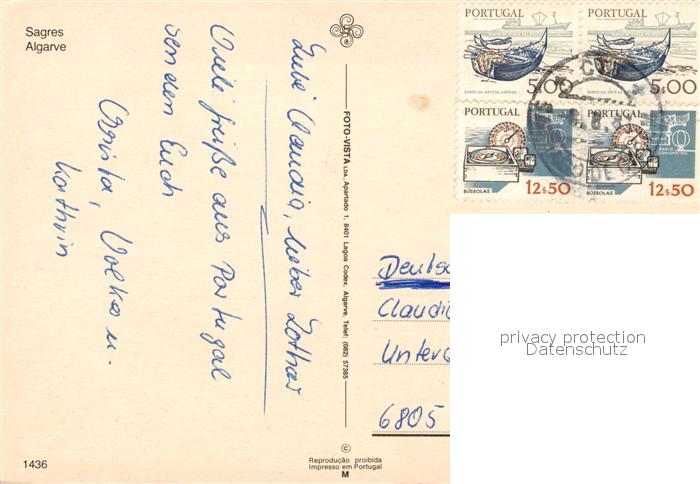 Sagres
Algarve
Liebe Claudia, lieber Lothar
Viele Grüße aus Portugal
senden Euch
Volker u.
Kathrin
FOTO-VISTA LDA. Apartado 1, 8401 Lagoa Codex, Algarve, Telef: (082) 57385
PORTUGAL
5$00
PORTUGAL
5$00
PORTUGAL
BÚSSOLAS
12$50
PORTUGAL
BÚSSOLAS
12$50
Deutsc
Claudi
Unter
6805
privacy protection
Datenschutz
1436
©
Reprodução proibida
Impresso em Portugal
M